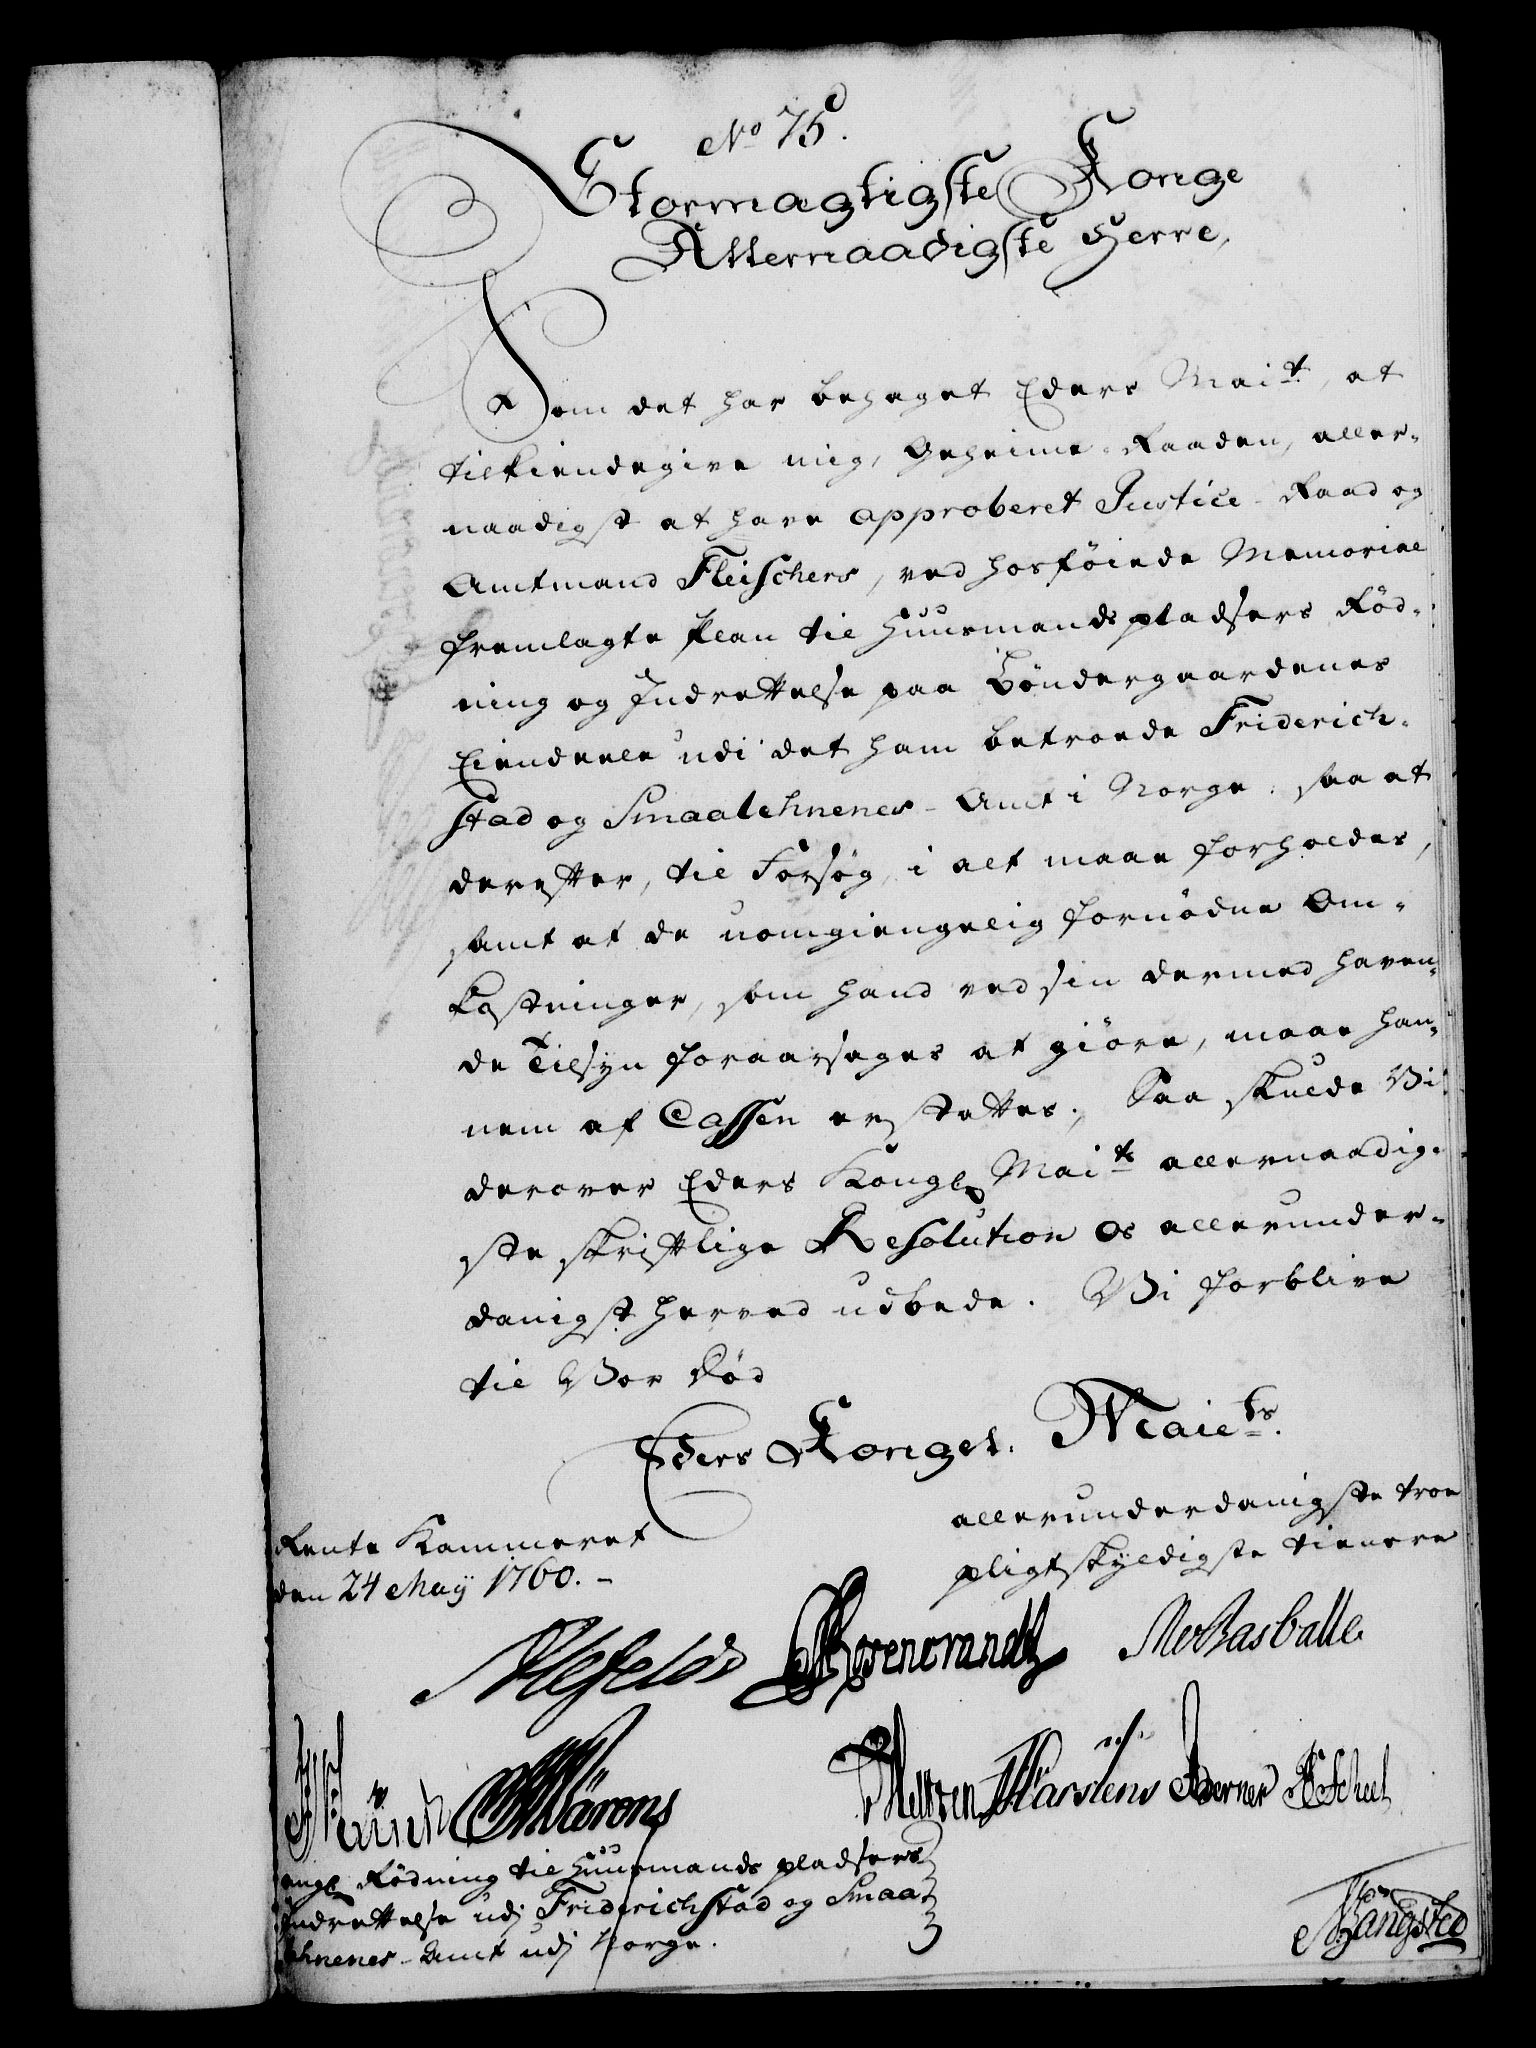 No 75.
Stormægtigste Konge
Allernaadigste Herre,
Som det har behaget Eders Mait, at
tilkiendegive mig, Geheime-Raaden, aller-
naadigst at have approberet Justice-Raad og
Amtmand Fleischers, ved hosföiede Memorial
fremlagte Plan til Huusmandspladsers Rӧd-
ning og Indrettelse paa Bӧndergaardenes
Eiendeele udi det ham betroede Friderich-
stad og Smaalehnenes-Amt i Norge, saa at
derefter, til Forsøg, i alt maae forholdes,
samt at de uomgiengelig fornӧdne Om-
kostninger, som hand ved sin dermed haven-
de Tilsyn foraarsages at giӧre, maae han-
nem af Cassen erstattes; Saa skulde Vi
derover Eders Kongl. Maits allernaadig-
ste skriftlige Resolution os allerunder-
danigst herved udbede. Vi forblive
til Vor Dӧd
Eders Kongel. Maiets.
allerunderdanigste troe
pligtskyldigste tienere
Rente Kammeret
den 24 Maÿ 1760.-
Alefeldt Rosencrantz
Mörens Karstens Berner Scheel
angl. Rӧdning til Huusmands pladsers
Indrettelse udj Friderichstad og Smaa-
lehnenes-Amt udj Norge.
Bangsted